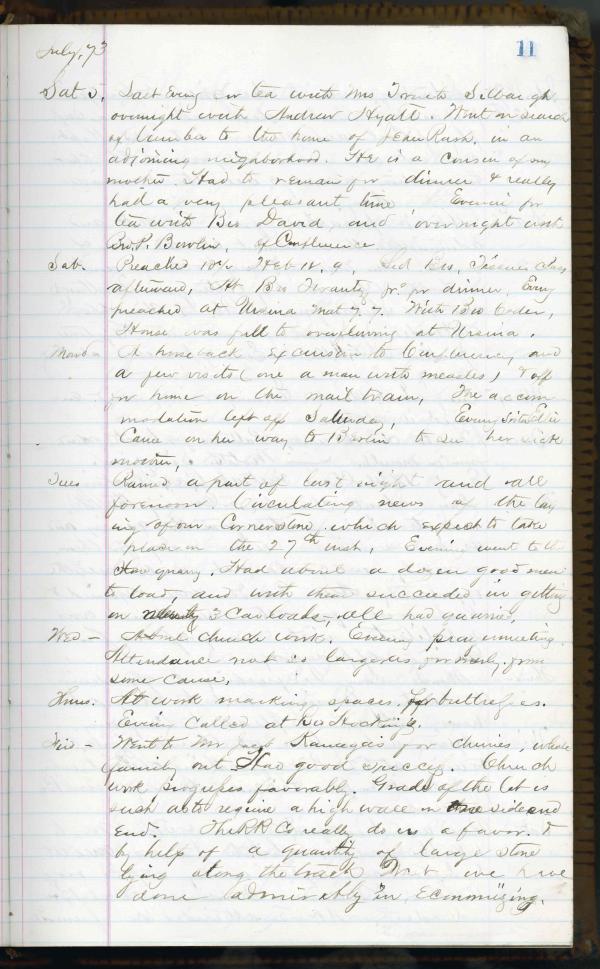 11
July, 73
Sat Last Eveng for tea with Mrs
overnight with Andrew Hyatt. Went in search
of lumber to the home of Rush, in an
adjoining neigborhood. He is a cousin of my
mother. Had to remain for dinner & really
had a very pleasant time Evenin for
tea with Bro David, and overnight with
Bro. P. Bowlin, of Confluence
Sab. Preached 10½ Heb 12. 9, Led Bro,
afterward, At Bro jr. for dinner, Eveng
preached at Ursina Mat 7.7. With Bro
House was full to overflowing at Ursina.
Mond- A horseback excursion to Confluence, and
a few visits (one a man with measles) & off
for home on the mail train, The accom
modation left off Saturday, Eveng Sister
Came on her way to Berlin to see her sick
mother,
Tues Rained a part of last night and all
forenoon. Circulating news of the lay
ing of our Corner stone, which expect to take
place on the 27th inst, Evening went to the
quarry. Had about a dozen good men
to load, and with them succeeded in getting
on 3 car loads,- all had quarried.
Wed- At church work. Evening prayermeeting.
Attendance not so large as formerly, from
some cause,
Thurs. At work marking spaces for buttresses.
Evening called at Bro Hocking's.
Frid- Went to Mr for chimes, whole
family out Had good success. Church
work progresses favorably. Grade of the lot is
such as to require a high wall on one side and
End. The RR Co really do us a favor. &
by help of a quantity of large stone
lying along the track we have
done admirably in economizing.